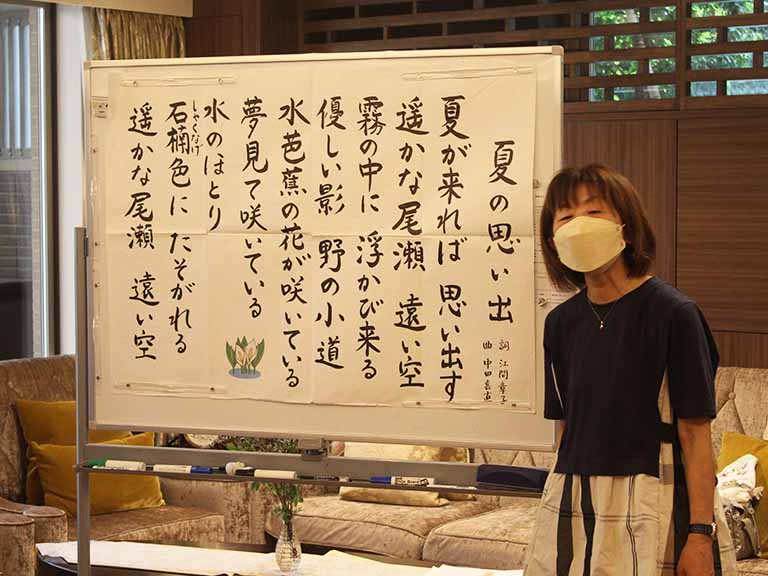 夏の思い出
詞 江間章子
曲 中田喜直
夏が来れば 思い出す
遥かな尾瀬 遠い空
霧の中に 浮かび来る
優しい影 野の小道
水芭蕉の花が咲いている
夢見て咲いている
水のほとり
石楠色に たそがれる
しゃくなげ
遥かな尾瀬 遠い空